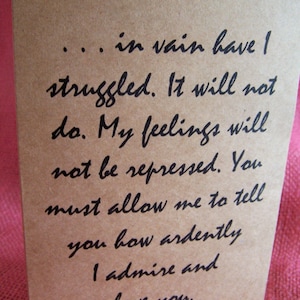 . . . in vain have I
struggled. It will not
do. My feelings will
not be repressed. You
must allow me to tell
you how ardently
I admire and
love you.